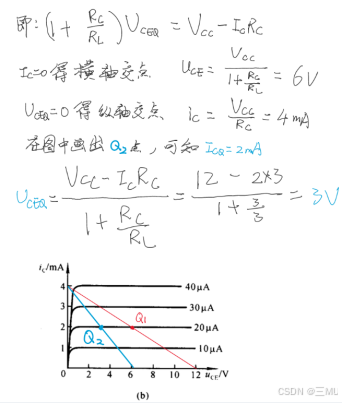 即: (1 + Rc/RL) UCEQ = VCC - IcRC
Ic=0 得横轴交点 UCE = VCC/(1+Rc/RL) = 6V
UCEQ=0 得纵轴交点 ic = VCC/RC = 4mA
在图中画出 Q2 点, 可知 ICQ=2mA
UCEQ = (VCC-IcRC)/(1+Rc/RL) = (12-2*3)/(1+3/3) = 3V
iC/mA
4
40μA
3
30μA
Q1
2
20μA
Q2
1
10μA
0 2 4 6 8 10 12 uCE/V
(b)
CSDN @三ML